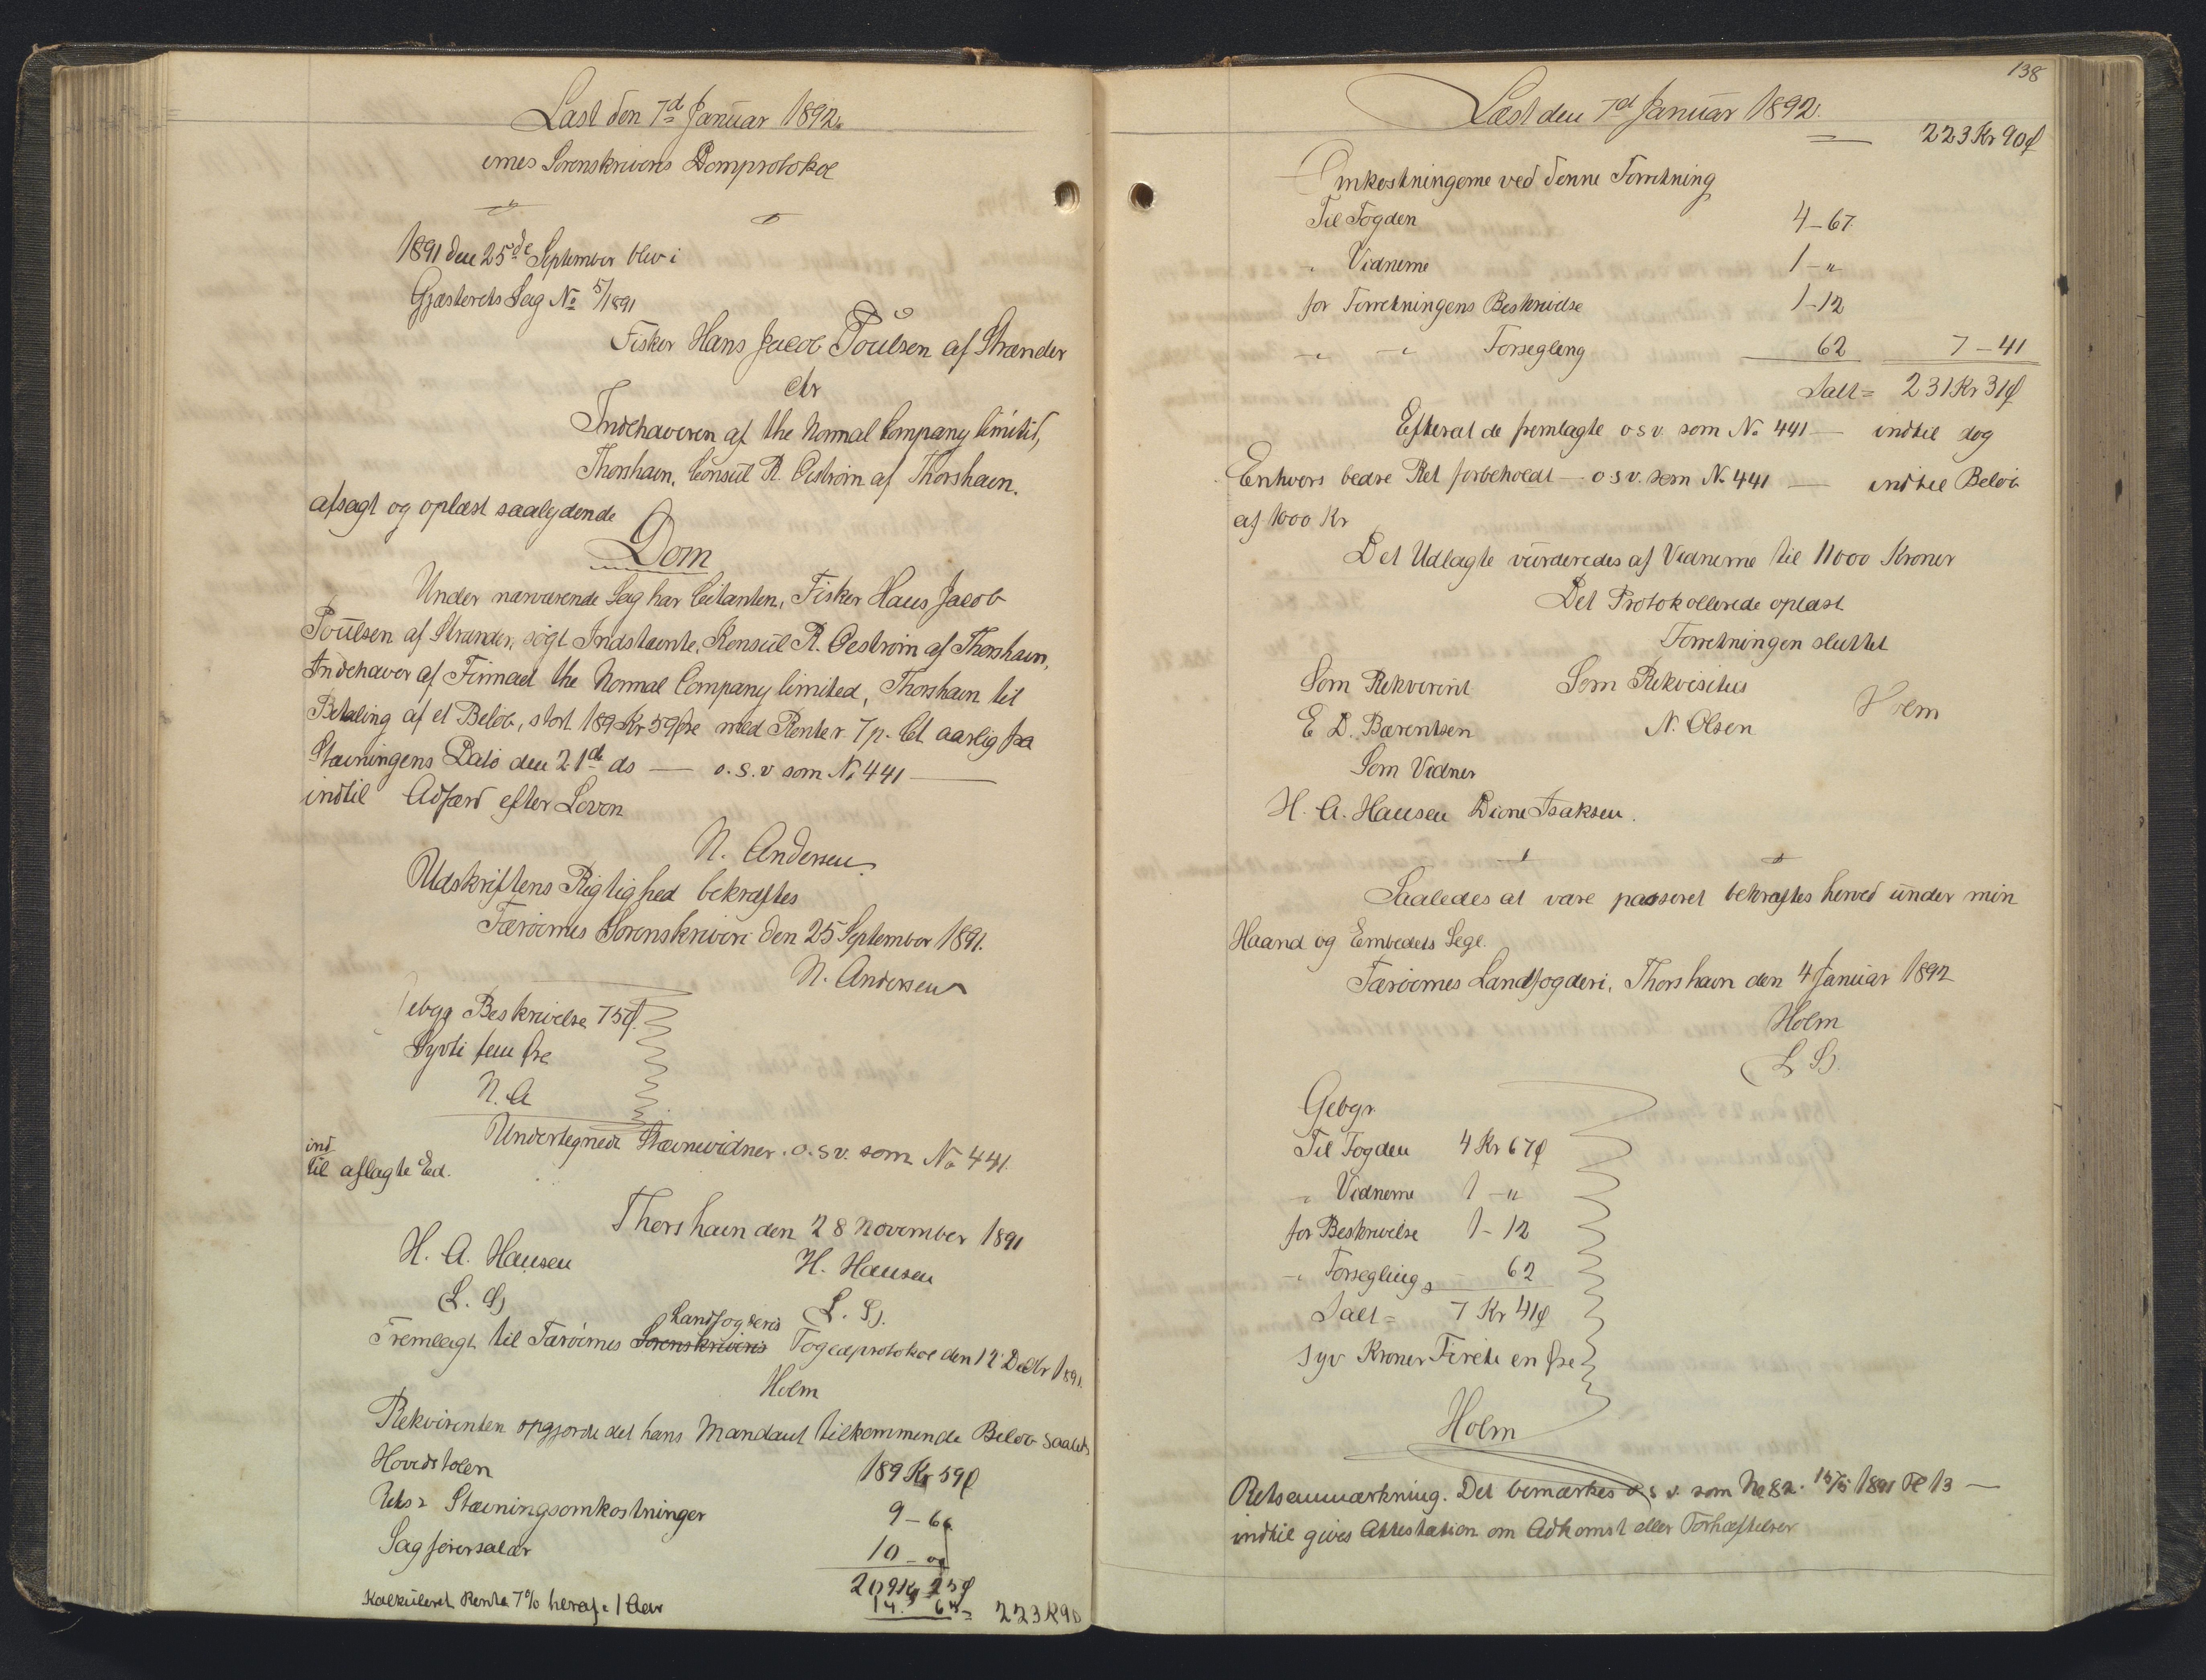 Læst den 7d Januar 1892.
ernes Sorenskriveris Domprotokol
1891 den 25de September blev i
Gjæsterets Sag No 5/1891
Fisker Hans Jacob Poulsen af Strænder
ctr
Indehaveren af the Normal Company limitid,
Thorshavn, Consul R. Oestrøm af Thorshavn.
afsagt og oplæst saalydende
Dom
Under nærværende Sag har Citanten, Fisker Hans Jacob
Poulsen af Strænder, søgt Indstævnte, Konsul R. Oestrøm af Thorshavn,
Indehaver af Firmaet the Normal Company limited, Thorshavn til
Betaling af et Beløb, stort 189 Kr 59 Øre med Renter 7 p. Ct aarlig fra
Stævningens Dato den 21de ds — o. s. v som No 441 —
indtil Adfærd efter Loven
N. Andersen
Udskriftens Rigtighed bekræftes
Færöernes Sorenskriveri den 25 September 1891.
N. Andersen
Gebyr Beskrivelse 75 Ø.
Syvti fem Øre
N. A
Undertegnede Stævnevidner. o. s v. som No 441.
ind
til aflagte Ed.
Thorshavn den 28 November 1891
H. A. Hansen H. Hansen
(L. S) L. S).
Landfogderis
Fremlagt til Færöernes Sorenskriveris Fogedprotokol den 12 Decbr 1891.
Holm
Rekvirenten opgjorde det hans Mandant tilkommende Beløb saalds
Hovedstolen 189 Kr 59 Ø
Rets & Stævningsomkostninger 9 – 66
Sagførersalær 10 – "
209 Kr 25 Ø
Kalkuleret Rente 7% heraf i 1 Aar 14. 65 = 223 K 90
138
Læst den 7d Januar 1892.
223 Kr 90 Ø
Omkostningerne ved denne Forretning
Til Fogden 4 – 67
" Vidnerne 1 – "
for Forretningens Beskrivelse 1 – 12
" " Forsegling 62 7 – 41
Ialt = 231 Kr 31 Ø
Efterat de fremlagte o s v. som No 441 — indtil dog
Enhvers bedre Ret forbeholdt — o s v. som No 441 — indtil Beløb
af 1000 Kr
Det Udlagte vurderedes af Vidnerne til 11000 Kroner
Det Protokollerede oplæst
Forretningen sluttet
Som Rekvirent Som Rekvisitus
Holm
E D. Bærentsen N. Olsen
Som Vidner
H. A. Hansen Isaksen.
Saaledes at være passeret bekræftes herved under min
Haand og Embedets Segl.
Færöernes Landfogderi, Thorshavn den 4 Januar 1892
Holm
(L S).
Gebyr
Til Fogden 4 Kr 67 Ø
" Vidnerne 1 – "
for Beskrivelse 1 – 12
" Forsegling – 62
Ialt = 7 Kr 41 Ø
Syv Kroner Fireti en Øre
Holm
Retsanmærkning. Det bemærkes o s v. som No 82. 15/5 1891 Pl 13 —
indtil gives Attestation om Adkomst eller Forhæftelser